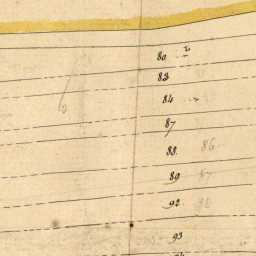 80
83
84
87
88 86
89 87
92
93